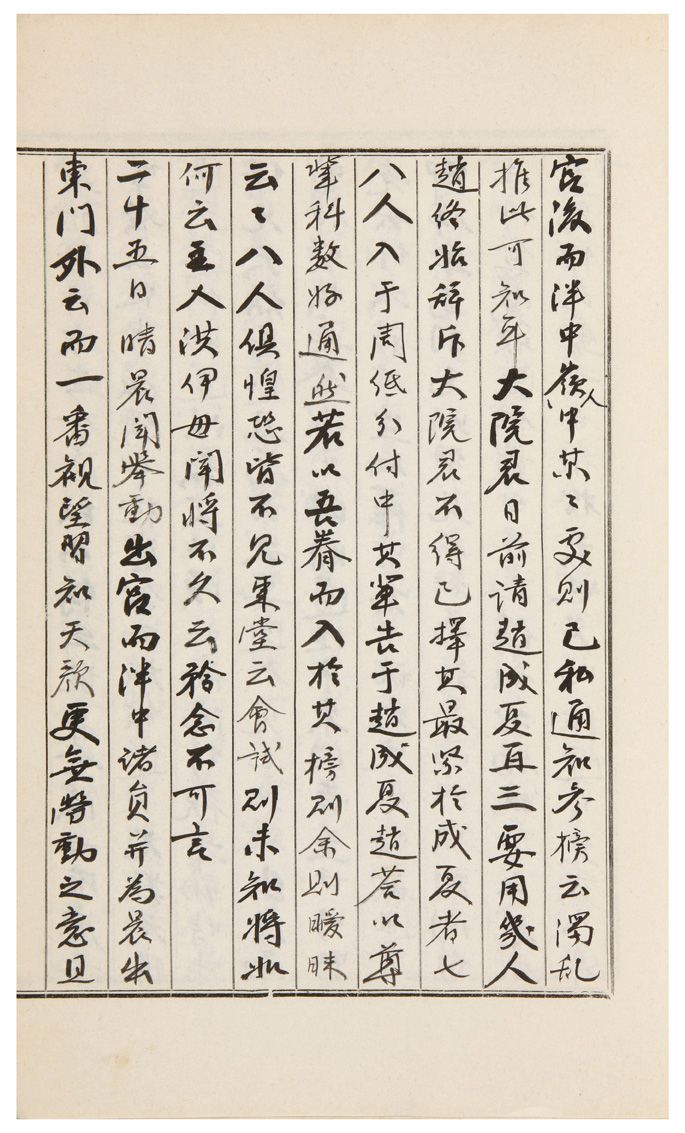 宮後而泮中嶺人中某〻處則已私通知參榜云濁乱
推此可知耳大院君日前請趙成夏再三要用幾人
趙終始辭斥大院君不得已擇其最緊於成夏者七
八人入于周紙分付中其輩告于趙成夏趙答以尊
輩科數好通然若以吾眷而入於其榜則余則曖昧
云〻八人俱惶恐皆不見東堂云會試則未知將如
何云主人洪伊毋聞將不久云矜念不可言
二十五日晴晨聞擧動出宮而泮中諸員并為晨出
東門外云而一番視望習知天顔更無游動之意且